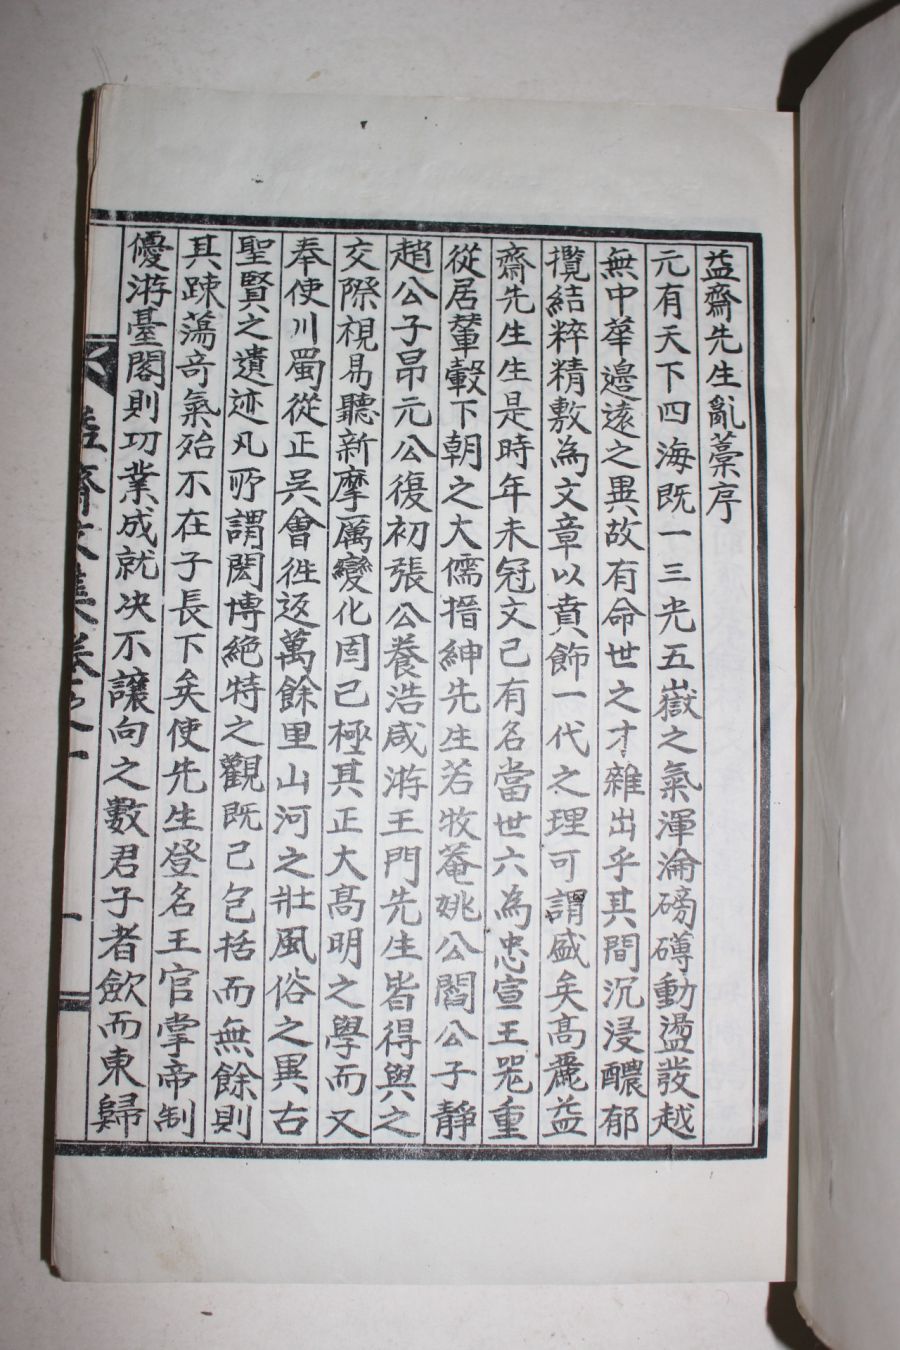 益齋先生亂藁序
元有天下四海既一三光五嶽之氣渾淪磅礴動盪發越
無中華邊遠之異故有命世之才雜出乎其間沉浸醲郁
攬結粹精敷為文章以賁飾一代之理可謂盛矣高麗益
齋先生生是時年未冠文已有名當世六為忠宣王器重
從居輦轂下朝之大儒搢紳先生若牧菴姚公閻公子靜
趙公子昂元公復初張公養浩咸游王門先生皆得與之
交際視易聽新摩厲變化固已極其正大高明之學而又
奉使川蜀從正吳會往返萬餘里山河之壯風俗之異古
聖賢之遺迹凡所謂閎博絶特之觀既已包括而無餘則
其疎蕩奇氣殆不在子長下矣使先生登名王官掌帝制
優游臺閣則功業成就决不讓向之數君子者歛而東歸
益齋文集卷之一
一